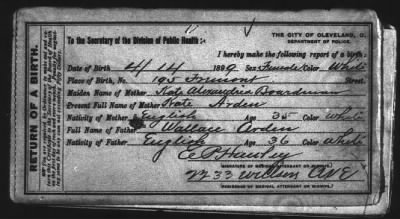 THE CITY OF CLEVELAND, O.
DEPARTMENT OF POLICE.
To the Secretary of the Division of Public Health
I hereby make the following report of a birth:
RETURN OF A BIRTH.
Date of Birth 4/14 1899 Sex Female Color White
Place of Birth, No. 195 Fremont Street.
Maiden Name of Mother Kate Alexandria Boardman
Present Full Name of Mother Kate Arden
Nativity of Mother English Age 35 Color White
Full Name of Father Wallace Arden
Nativity of Father English Age 36 Color White
SIGNATURE OF MEDICAL ATTENDANT OR MIDWIFE.
2233 AVE
RESIDENCE OF MEDICAL ATTENDANT OR MIDWIFE.